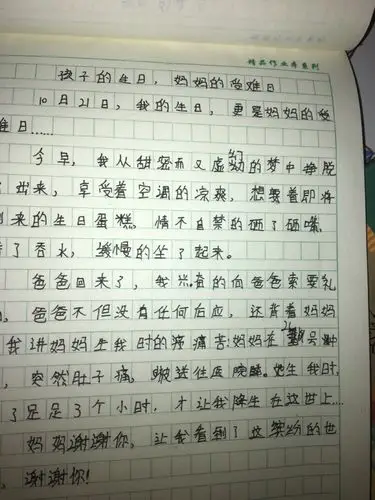 精品作业本系列
孩子的生日，妈妈的受难日
10月21日，我的生日，更是妈妈的受
难日……
今早，我从甜密而又虚幻的梦中挣脱
了出来，享受着空调的凉爽，想着即将
到来的生日蛋糕，情不自禁的砸了砸嘴，
了香水，缓慢的坐了起来。
爸爸回来了，我的向爸爸索要礼
，爸爸不但没有任何反应，还背着妈妈
我讲妈妈生我时的疼痛苦：妈妈在21号
，突然肚子痛，送往医院。她生我时，
了足足3个小时，才让我降生在这世上…
妈妈谢谢你，让我看到了这缤纷的世
，谢谢你！